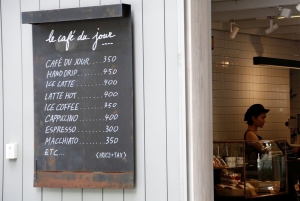 le café du jour
CAFÉ DU JOUR......350
HAND DRIP........450
ICE LATTE.........400
LATTE HOT........400
ICE COFFEE.......350
CAPPUCCINO......400
ESPRESSO.........300
MACCHIATO.......350
ETC...